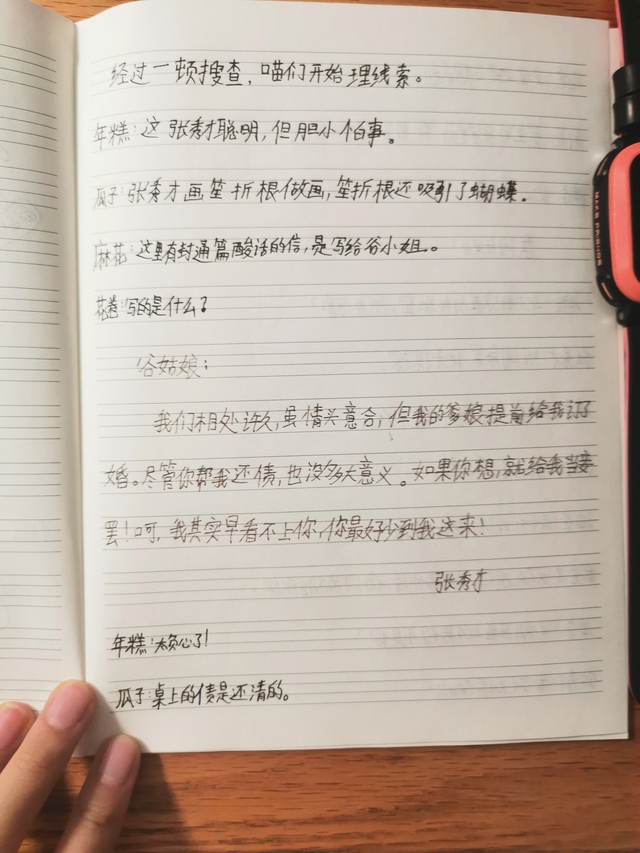 经过一顿搜查，喵们开始理线索。
年糕：这张秀才聪明，但胆小怕事。
瓜子：张秀才画笙折根做画，笙折根还吸引了蝴蝶。
麻花：这里有封通篇酸话的信，是写给谷小姐。
花卷：写的是什么？
谷姑娘：
我们相处许久，虽情头意合，但我的爹娘提前给我订了
婚。尽管你帮我还债，也没多大意义。如果你想，就给我当妾
罢！呵，我其实早看不上你，你最好少到我这来！
张秀才
年糕：太负心了！
瓜子：桌上的债是还清的。